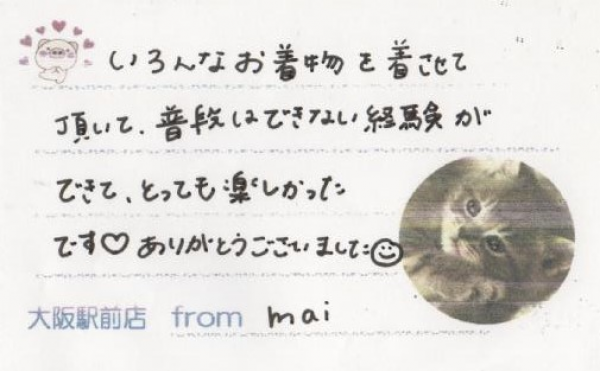 いろんなお着物を着させて
頂いて、普段はできない経験が
できて、とっても楽しかった
です♡ありがとうございました☺
大阪駅前店 from mai